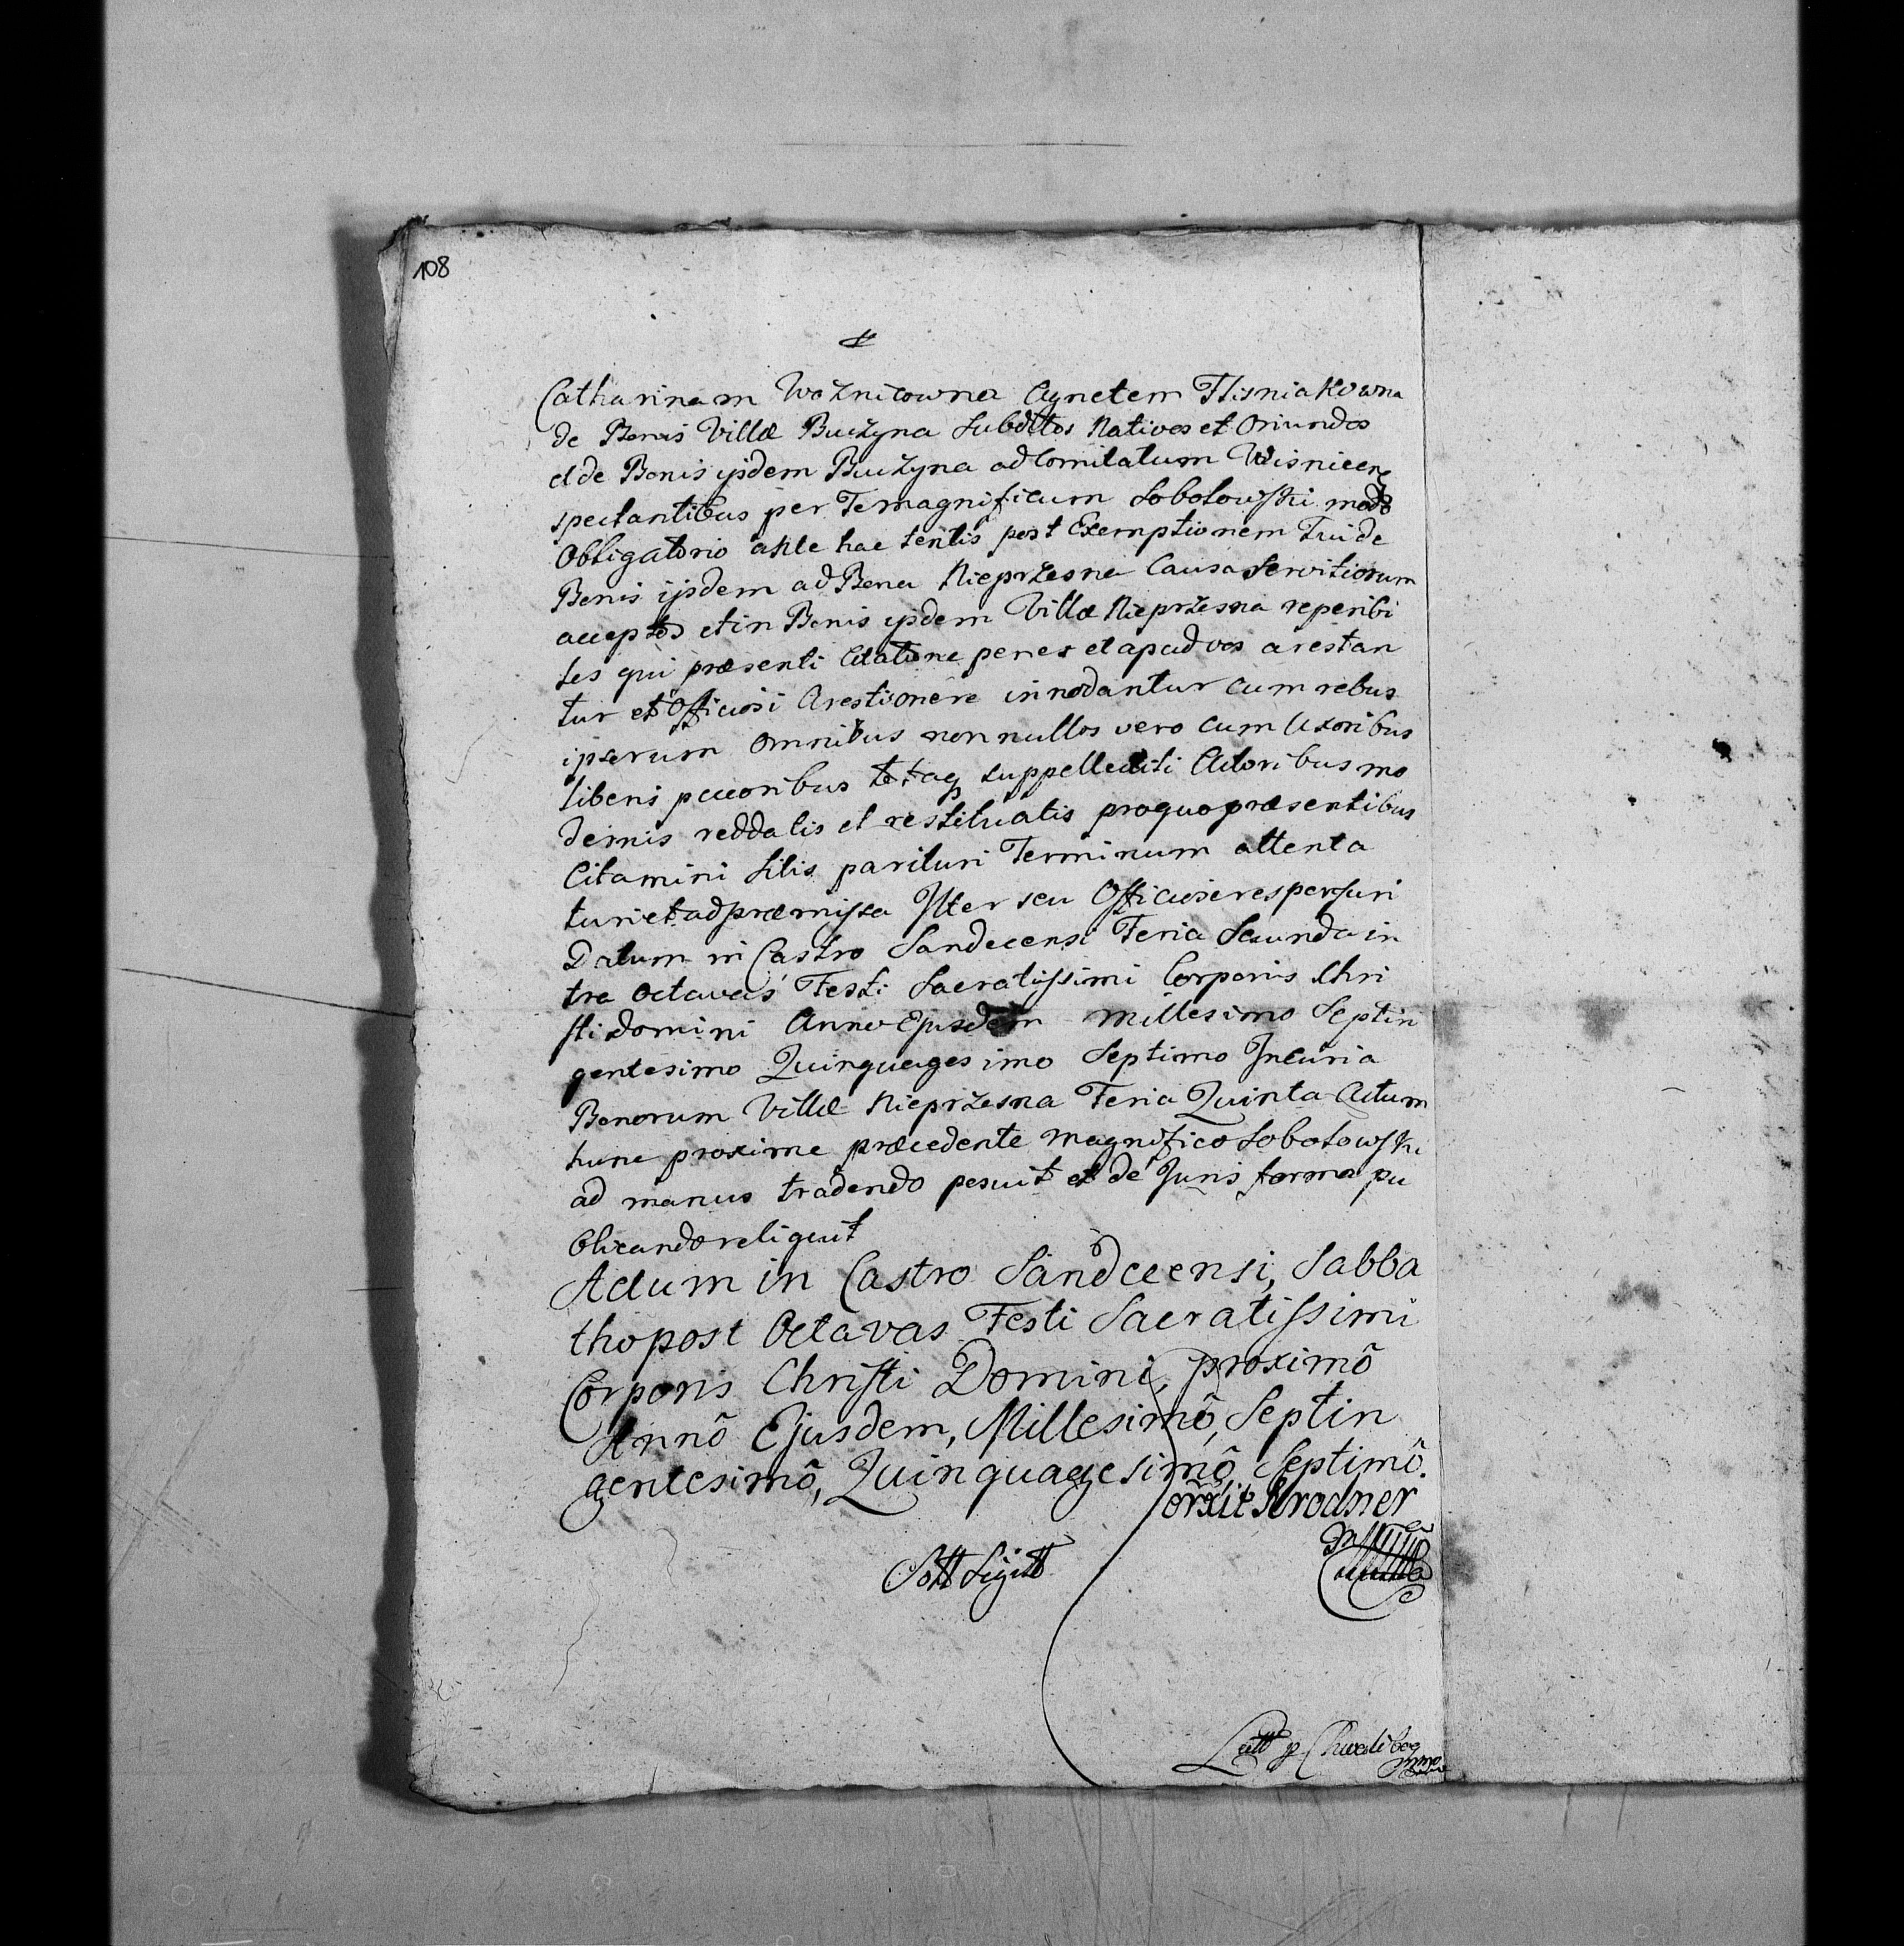 108
Catharinam Woznicowna Agnetem Flisniakowna
de Bonis Villæ Buczyna Subditos Nativos et Oriundos
et de Bonis ijsdem Buczyna ad Comitatum Wisnicen
spectantibus per Te magnificum Sobolowski modo
Obligatorio ante hac tentis post Exemptionem Tui de
Bonis ijsdem ad Bona Nieprzesna Causa Servitiorum
acceptos et in Bonis ijsdem Villæ Nieprzesna reperibi
les qui præsenti Citatione penes et apud vos arestan
tur et Officiosi Arestionere innodantur cum rebus
ipsorum omnibus non nullos vero cum Uxoribus
liberis pecoribus totaq suppellectili Actoribus mo
dernis reddatis et restituatis pro quo præsentibus
Citamini Litis parituri Terminum attenta
turi et ad præmissa Jlter seu Officiose responsuri
Datum in Castro Sandecensi Feria Secunda in
tra Octavas Festi Sacratissimi Corporis Chri
sti Domini Anno Ejusdem Millesimo Septin
gentesimo Quinquagesimo Septimo In Curia
Bonorum Villæ Nieprzesna Feria Quinta Actum
hunc proxime præcedente magnifico Sobolowski
ad manus tradendo posuit et de Juris forma pu
blicando reliquit
Actum in Castro Sandecensi, Sabba
tho post Octavas Festi Sacratissimi
Corporis Christi Domini, proximô
Annô Ejusdem, Millesimô, Septin
gentesimô, Quinquagesimô, Septimô.